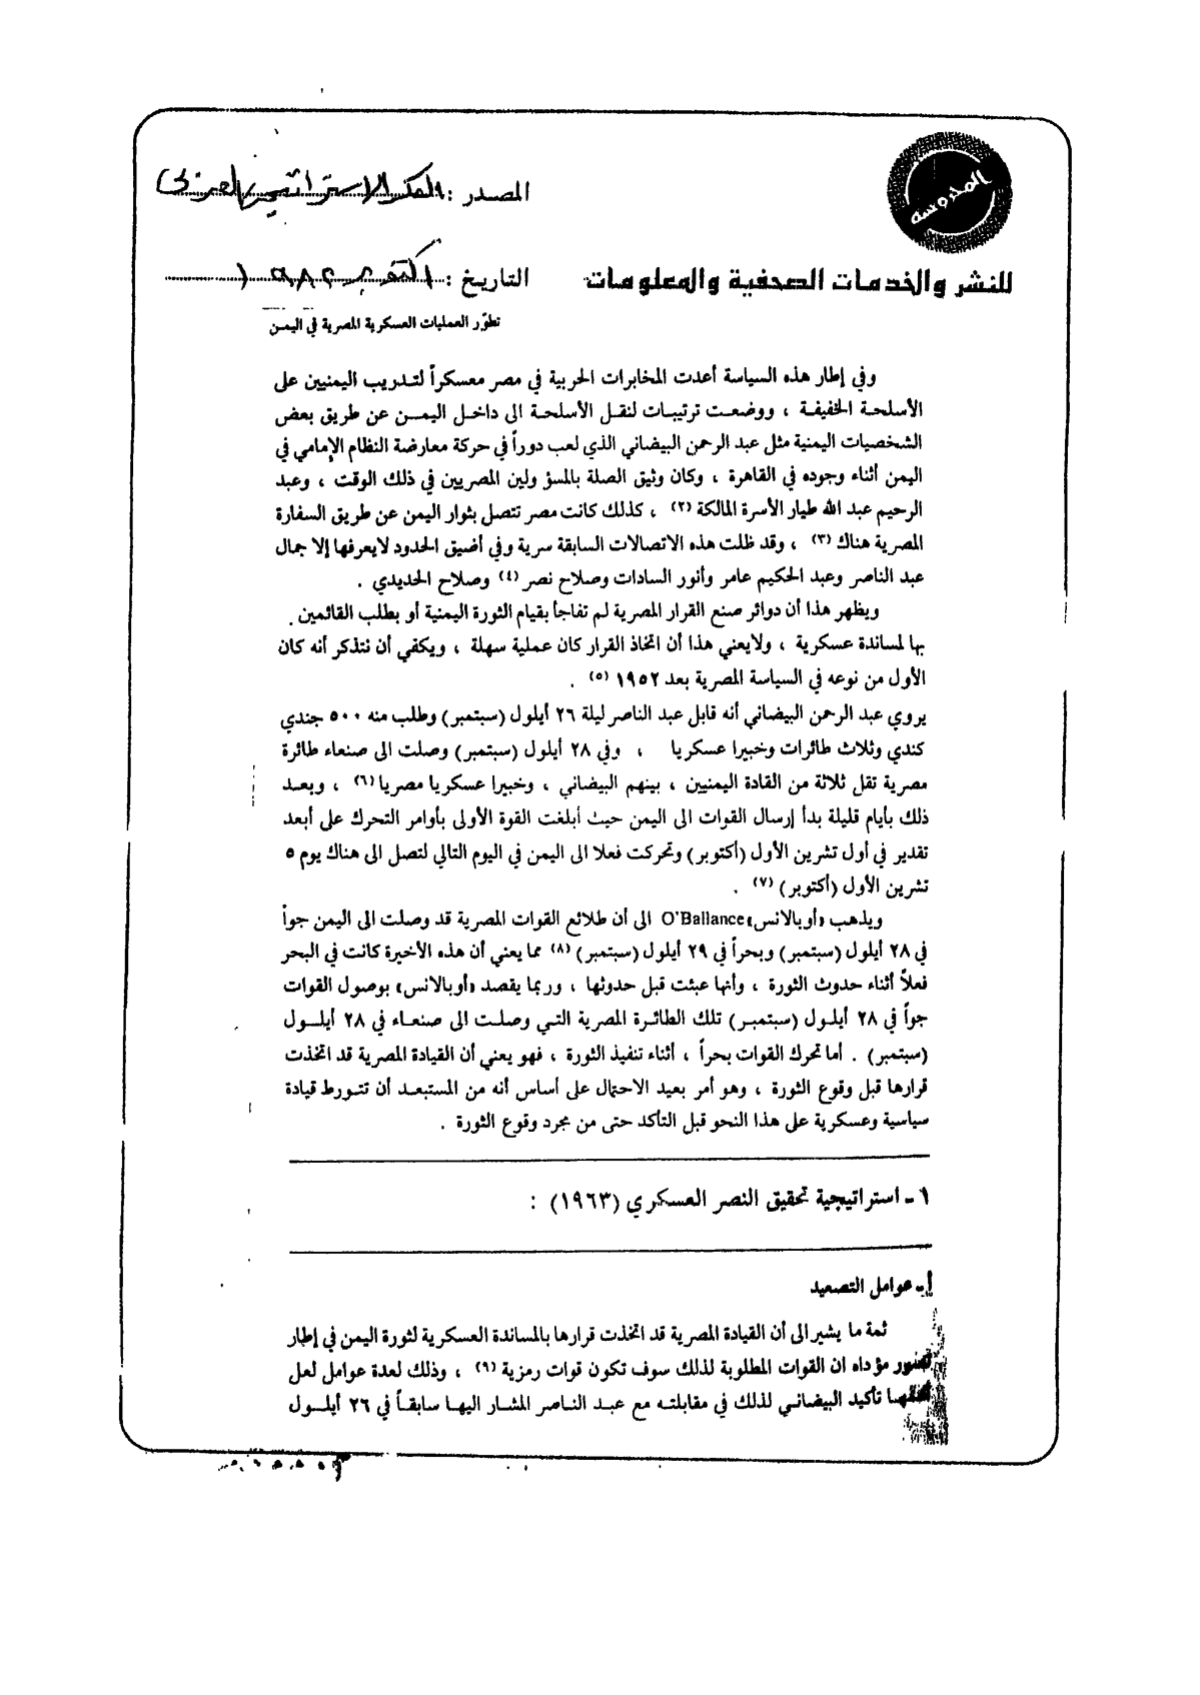 المحروسة
المصدر : الفكر الاستراتيجي العربي
للنشر والخدمات الصحفية والمعلومات
التاريخ : اكتوبر ١٩٨٢
تطوّر العمليات العسكرية المصرية في اليمن
وفي إطار هذه السياسة أعدت المخابرات الحربية في مصر معسكراً لتدريب اليمنيين على
الأسلحة الخفيفة ، ووضعت ترتيبات لنقل الأسلحة الى داخل اليمن عن طريق بعض
الشخصيات اليمنية مثل عبد الرحمن البيضاني الذي لعب دوراً في حركة معارضة النظام الإمامي في
اليمن أثناء وجوده في القاهرة ، وكان وثيق الصلة بالمسؤ ولين المصريين في ذلك الوقت ، وعبد
الرحيم عبد الله طيار الأسرة المالكة (٢) ، كذلك كانت مصر تتصل بثوار اليمن عن طريق السفارة
المصرية هناك (٣) ، وقد ظلت هذه الاتصالات السابقة سرية وفي أضيق الحدود لايعرفها إلا جمال
عبد الناصر وعبد الحكيم عامر وأنور السادات وصلاح نصر (٤) وصلاح الحديدي .
ويظهر هذا أن دوائر صنع القرار المصرية لم تفاجأ بقيام الثورة اليمنية أو بطلب القائمين .
بها لمساندة عسكرية ، ولايعني هذا أن اتخاذ القرار كان عملية سهلة ، ويكفي أن نتذكر أنه كان
الأول من نوعه في السياسة المصرية بعد ١٩٥٢ (٥) .
يروي عبد الرحمن البيضاني أنه قابل عبد الناصر ليلة ٢٦ أيلول (سبتمبر) وطلب منه ٥٠٠ جندي
كندي وثلاث طائرات وخبيرا عسكريا ، وفي ٢٨ أيلول (سبتمبر) وصلت الى صنعاء طائرة
مصرية تقل ثلاثة من القادة اليمنيين ، بينهم البيضاني ، وخبيرا عسكريا مصريا (٦) ، وبعد
ذلك بأيام قليلة بدأ إرسال القوات الى اليمن حيث أبلغت القوة الأولى بأوامر التحرك على أبعد
تقدير في أول تشرين الأول (أكتوبر) وتحركت فعلا الى اليمن في اليوم التالي لتصل الى هناك يوم ٥
تشرين الأول (أكتوبر) (٧) .
ويذهب «أوبالانس» O'Ballance الى أن طلائع القوات المصرية قد وصلت الى اليمن جواً
في ٢٨ أيلول (سبتمبر) وبحراً في ٢٩ أيلول (سبتمبر) (٨) مما يعني أن هذه الأخيرة كانت في البحر
فعلاً أثناء حدوث الثورة ، وأنها عبئت قبل حدوثها ، وربما يقصد «أوبالانس» بوصول القوات
جواً في ٢٨ أيلول (سبتمبر) تلك الطائرة المصرية التي وصلت الى صنعاء في ٢٨ أيلول
(سبتمبر) . أما تحرك القوات بحراً ، أثناء تنفيذ الثورة ، فهو يعني أن القيادة المصرية قد اتخذت
قرارها قبل وقوع الثورة ، وهو أمر بعيد الاحتمال على أساس أنه من المستبعد أن تتورط قيادة
سياسية وعسكرية على هذا النحو قبل التأكد حتى من مجرد وقوع الثورة .
١ - استراتيجية تحقيق النصر العسكري (١٩٦٣) :
أ- عوامل التصعيد
ثمة ما يشير الى أن القيادة المصرية قد اتخذت قرارها بالمساندة العسكرية لثورة اليمن في إطار
تصور مؤداه ان القوات المطلوبة لذلك سوف تكون قوات رمزية (٩) ، وذلك لعدة عوامل لعل
تأكيد البيضاني لذلك في مقابلته مع عبد الناصر المشار اليها سابقاً في ٢٦ أيلول